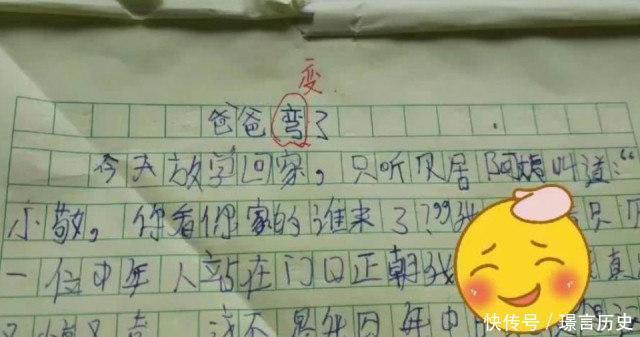 变
爸爸弯了
今天放学回家,只听居阿姨叫道:“
小敬,你看你家的谁来了??我 只见
一位中年人站在门口正朝我 真
又又喜,这不是年中
快传号/璟言历史